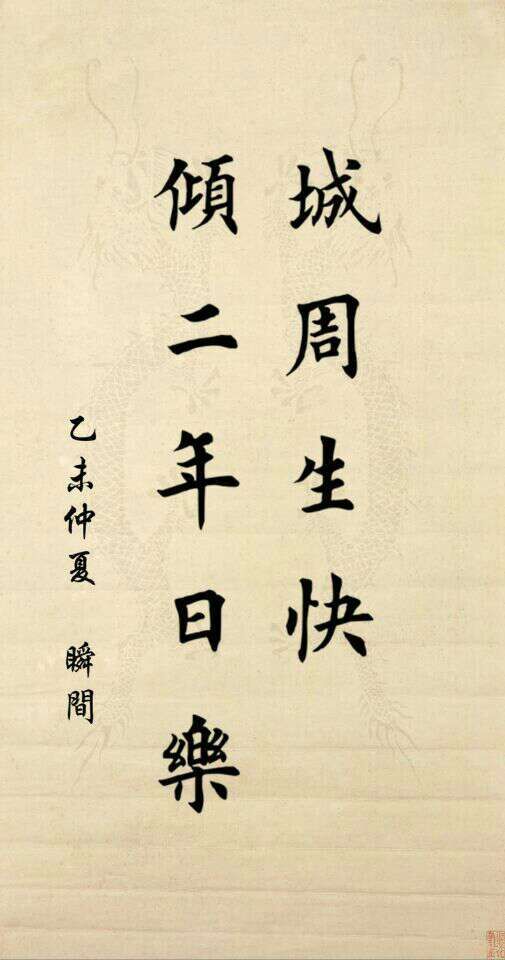 城周生快
傾二年日樂
乙未仲夏 瞬間